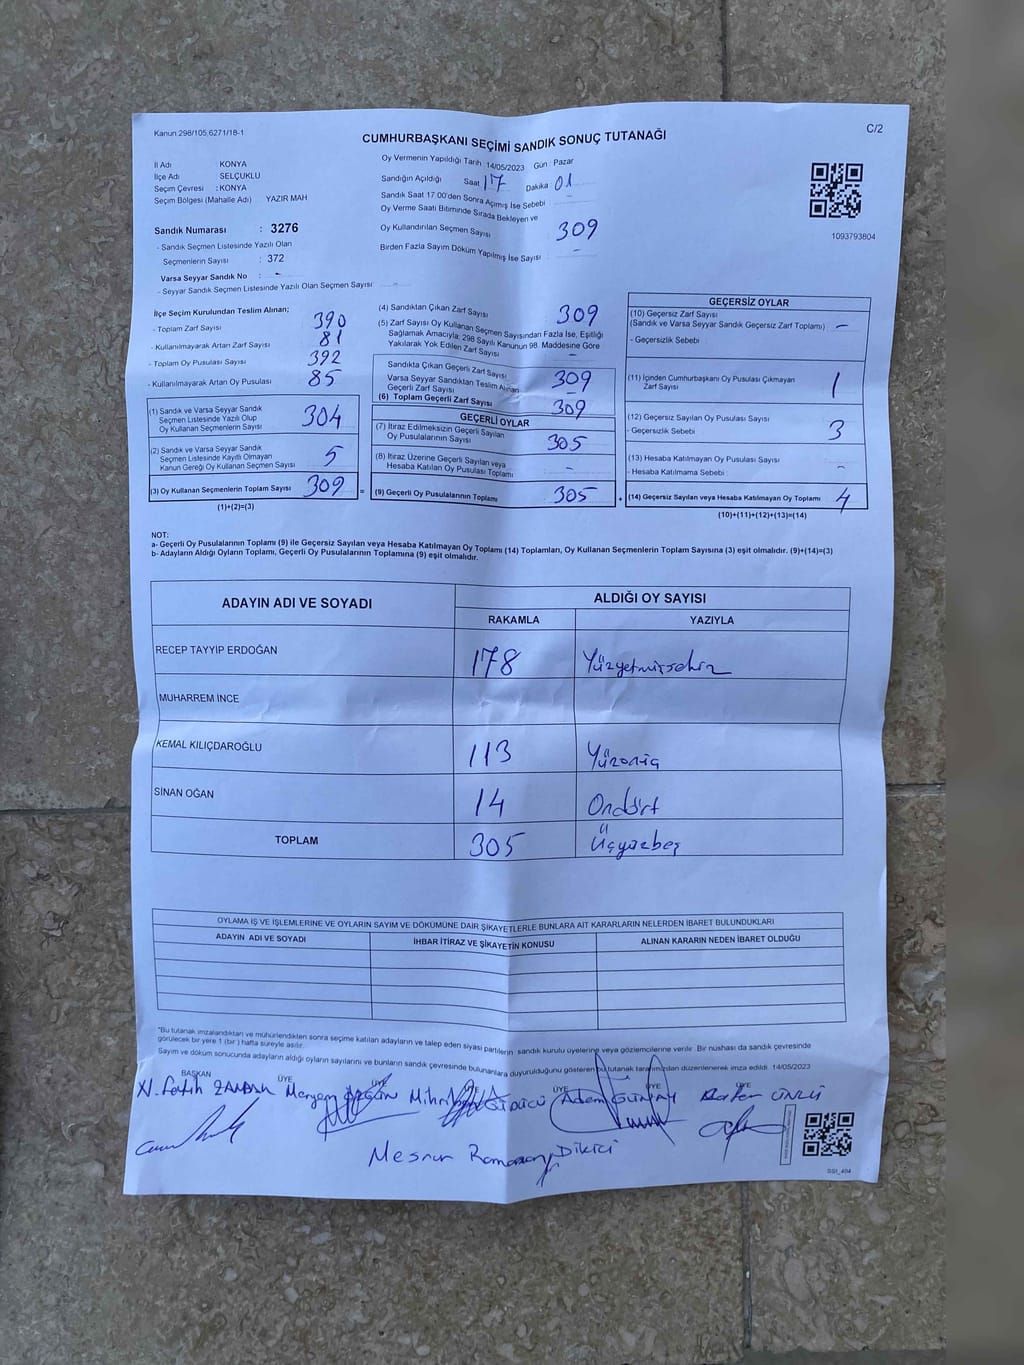 Kanun 298/105,6271/18-1
CUMHURBAŞKANI SEÇİMİ SANDIK SONUÇ TUTANAĞI
C/2
İl Adı KONYA
İlçe Adı SELÇUKLU
Seçim Çevresi : KONYA
Seçim Bölgesi (Mahalle Adı) YAZIR MAH
Sandık Numarası : 3276
- Sandık Seçmen Listesinde Yazılı Olan
Seçmenlerin Sayısı : 372
Varsa Seyyar Sandık No : -
- Seyyar Sandık Seçmen Listesinde Yazılı Olan Seçmen Sayısı:
Oy Vermenin Yapıldığı Tarih 14/05/2023 Gün Pazar
Sandığın Açıldığı Saat 17 Dakika 01
Sandık Saat 17.00'den Sonra Açılmış İse Sebebi : -
Oy Verme Saati Bitiminde Sırada Bekleyen ve
Oy Kullandırılan Seçmen Sayısı 309
Birden Fazla Sayım Döküm Yapılmış İse Sayısı : -
1093793804
İlçe Seçim Kurulundan Teslim Alınan;
- Toplam Zarf Sayısı 390
- Kullanılmayarak Artan Zarf Sayısı 81
- Toplam Oy Pusulası Sayısı 392
- Kullanılmayarak Artan Oy Pusulası 85
(1) Sandık ve Varsa Seyyar Sandık
Seçmen Listesinde Yazılı Olup
Oy Kullanan Seçmenlerin Sayısı 304
(2) Sandık ve Varsa Seyyar Sandık
Seçmen Listesinde Kayıtlı Olmayan
Kanun Gereği Oy Kullanan Seçmen Sayısı 5
(3) Oy Kullanan Seçmenlerin Toplam Sayısı 309 =
(1)+(2)=(3)
(4) Sandıktan Çıkan Zarf Sayısı 309
(5) Zarf Sayısı Oy Kullanan Seçmen Sayısından Fazla İse, Eşitliği
Sağlamak Amacıyla; 298 Sayılı Kanunun 98. Maddesine Göre
Yakılarak Yok Edilen Zarf Sayısı -
Sandıkta Çıkan Geçerli Zarf Sayısı 309
Varsa Seyyar Sandıktan Teslim Alınan
Geçerli Zarf Sayısı
(6) Toplam Geçerli Zarf Sayısı 309
GEÇERLİ OYLAR
(7) İtiraz Edilmeksizin Geçerli Sayılan
Oy Pusulalarının Sayısı 305
(8) İtiraz Üzerine Geçerli Sayılan veya
Hesaba Katılan Oy Pusulası Toplamı -
(9) Geçerli Oy Pusulalarının Toplamı 305 +
GEÇERSİZ OYLAR
(10) Geçersiz Zarf Sayısı
(Sandık ve Varsa Seyyar Sandık Geçersiz Zarf Toplamı) -
- Geçersizlik Sebebi :
(11) İçinden Cumhurbaşkanı Oy Pusulası Çıkmayan
Zarf Sayısı 1
(12) Geçersiz Sayılan Oy Pusulası Sayısı 3
- Geçersizlik Sebebi :
(13) Hesaba Katılmayan Oy Pusulası Sayısı -
- Hesaba Katılmama Sebebi :
(14) Geçersiz Sayılan veya Hesaba Katılmayan Oy Toplamı 4
(10)+(11)+(12)+(13)=(14)
NOT:
a- Geçerli Oy Pusulalarının Toplamı (9) ile Geçersiz Sayılan veya Hesaba Katılmayan Oy Toplamı (14) Toplamları, Oy Kullanan Seçmenlerin Toplam Sayısına (3) eşit olmalıdır. (9)+(14)=(3)
b- Adayların Aldığı Oyların Toplamı, Geçerli Oy Pusulalarının Toplamına (9) eşit olmalıdır.
ADAYIN ADI VE SOYADI ALDIĞI OY SAYISI
RAKAMLA YAZIYLA
RECEP TAYYİP ERDOĞAN 178 Yüzyetmişsekiz
MUHARREM İNCE
KEMAL KILIÇDAROĞLU 113 Yüzonüç
SİNAN OĞAN 14 Ondört
TOPLAM 305 Üçyüzbeş
OYLAMA İŞ VE İŞLEMLERİNE VE OYLARIN SAYIM VE DÖKÜMÜNE DAİR ŞİKAYETLERLE BUNLARA AİT KARARLARIN NELERDEN İBARET BULUNDUKLARI
ADAYIN ADI VE SOYADI İHBAR İTİRAZ VE ŞİKAYETİN KONUSU ALINAN KARARIN NEDEN İBARET OLDUĞU
"Bu tutanak imzalandıktan ve mühürlendikten sonra seçime katılan adayların ve talep eden siyasi partilerin sandık kurulu üyelerine veya gözlemcilerine verilir. Bir nüshası da sandık çevresinde
görülecek bir yere 1 (bir) hafta süreyle asılır.
Sayım ve döküm sonucunda adayların aldığı oyların sayılarını ve bunların sandık çevresinde bulunanlara duyurulduğunu gösteren bu tutanak tarafımızdan düzenlenerek imza edildi. 14/05/2023
BAŞKAN ÜYE ÜYE ÜYE ÜYE ÜYE ÜYE
N. Fatih Meryem Adem GÜNAY ÜNLÜ
Mesnur Ramazan DİKİCİ
SSI_404